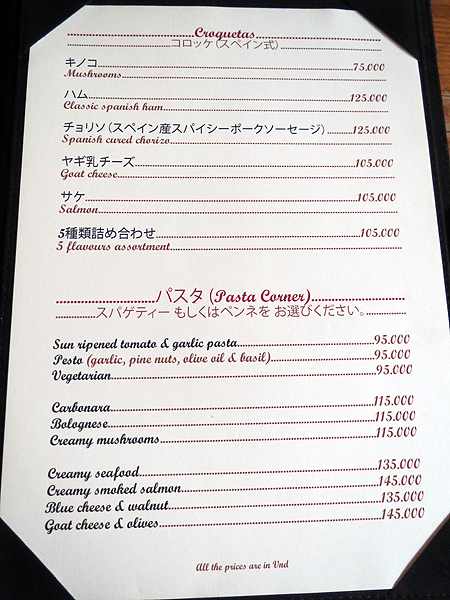 Croquetas
コロッケ(スペイン式)
キノコ 75.000
Mushrooms
ハム 125.000
Classic spanish ham
チョリソ(スペイン産スパイシーポークソーセージ) 125.000
Spanish cured chorizo
ヤギ乳チーズ 105.000
Goat cheese
サケ 105.000
Salmon
5種類詰め合わせ 105.000
5 flavours assortment
パスタ (Pasta Corner)
スパゲティー もしくはペンネを お選びください。
Sun ripened tomato & garlic pasta 95.000
Pesto (garlic, pine nuts, olive oil & basil) 95.000
Vegetarian 95.000
Carbonara 115.000
Bolognese 115.000
Creamy mushrooms 115.000
Creamy seafood 135.000
Creamy smoked salmon 145.000
Blue cheese & walnut 135.000
Goat cheese & olives 145.000
All the prices are in Vnd